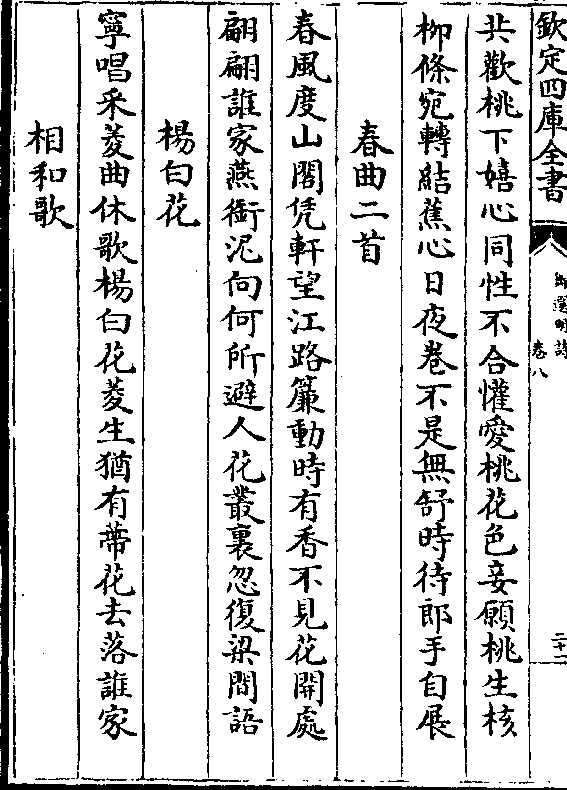 欽定四庫全書
御選明詩
卷八
二十一
共歡桃下嬉心同性不合懽愛桃花色妾願桃生核
柳條宛轉結蕉心日夜卷不是無舒時待郎手自展
春曲二首
春風度山閣凭軒望江路簾動時有香不見花開處
翩翩誰家燕銜泥向何所避人花叢裏忽復梁間語
楊白花
寧唱采菱曲休歌楊白花菱生猶有蔕花去落誰家
相和歌